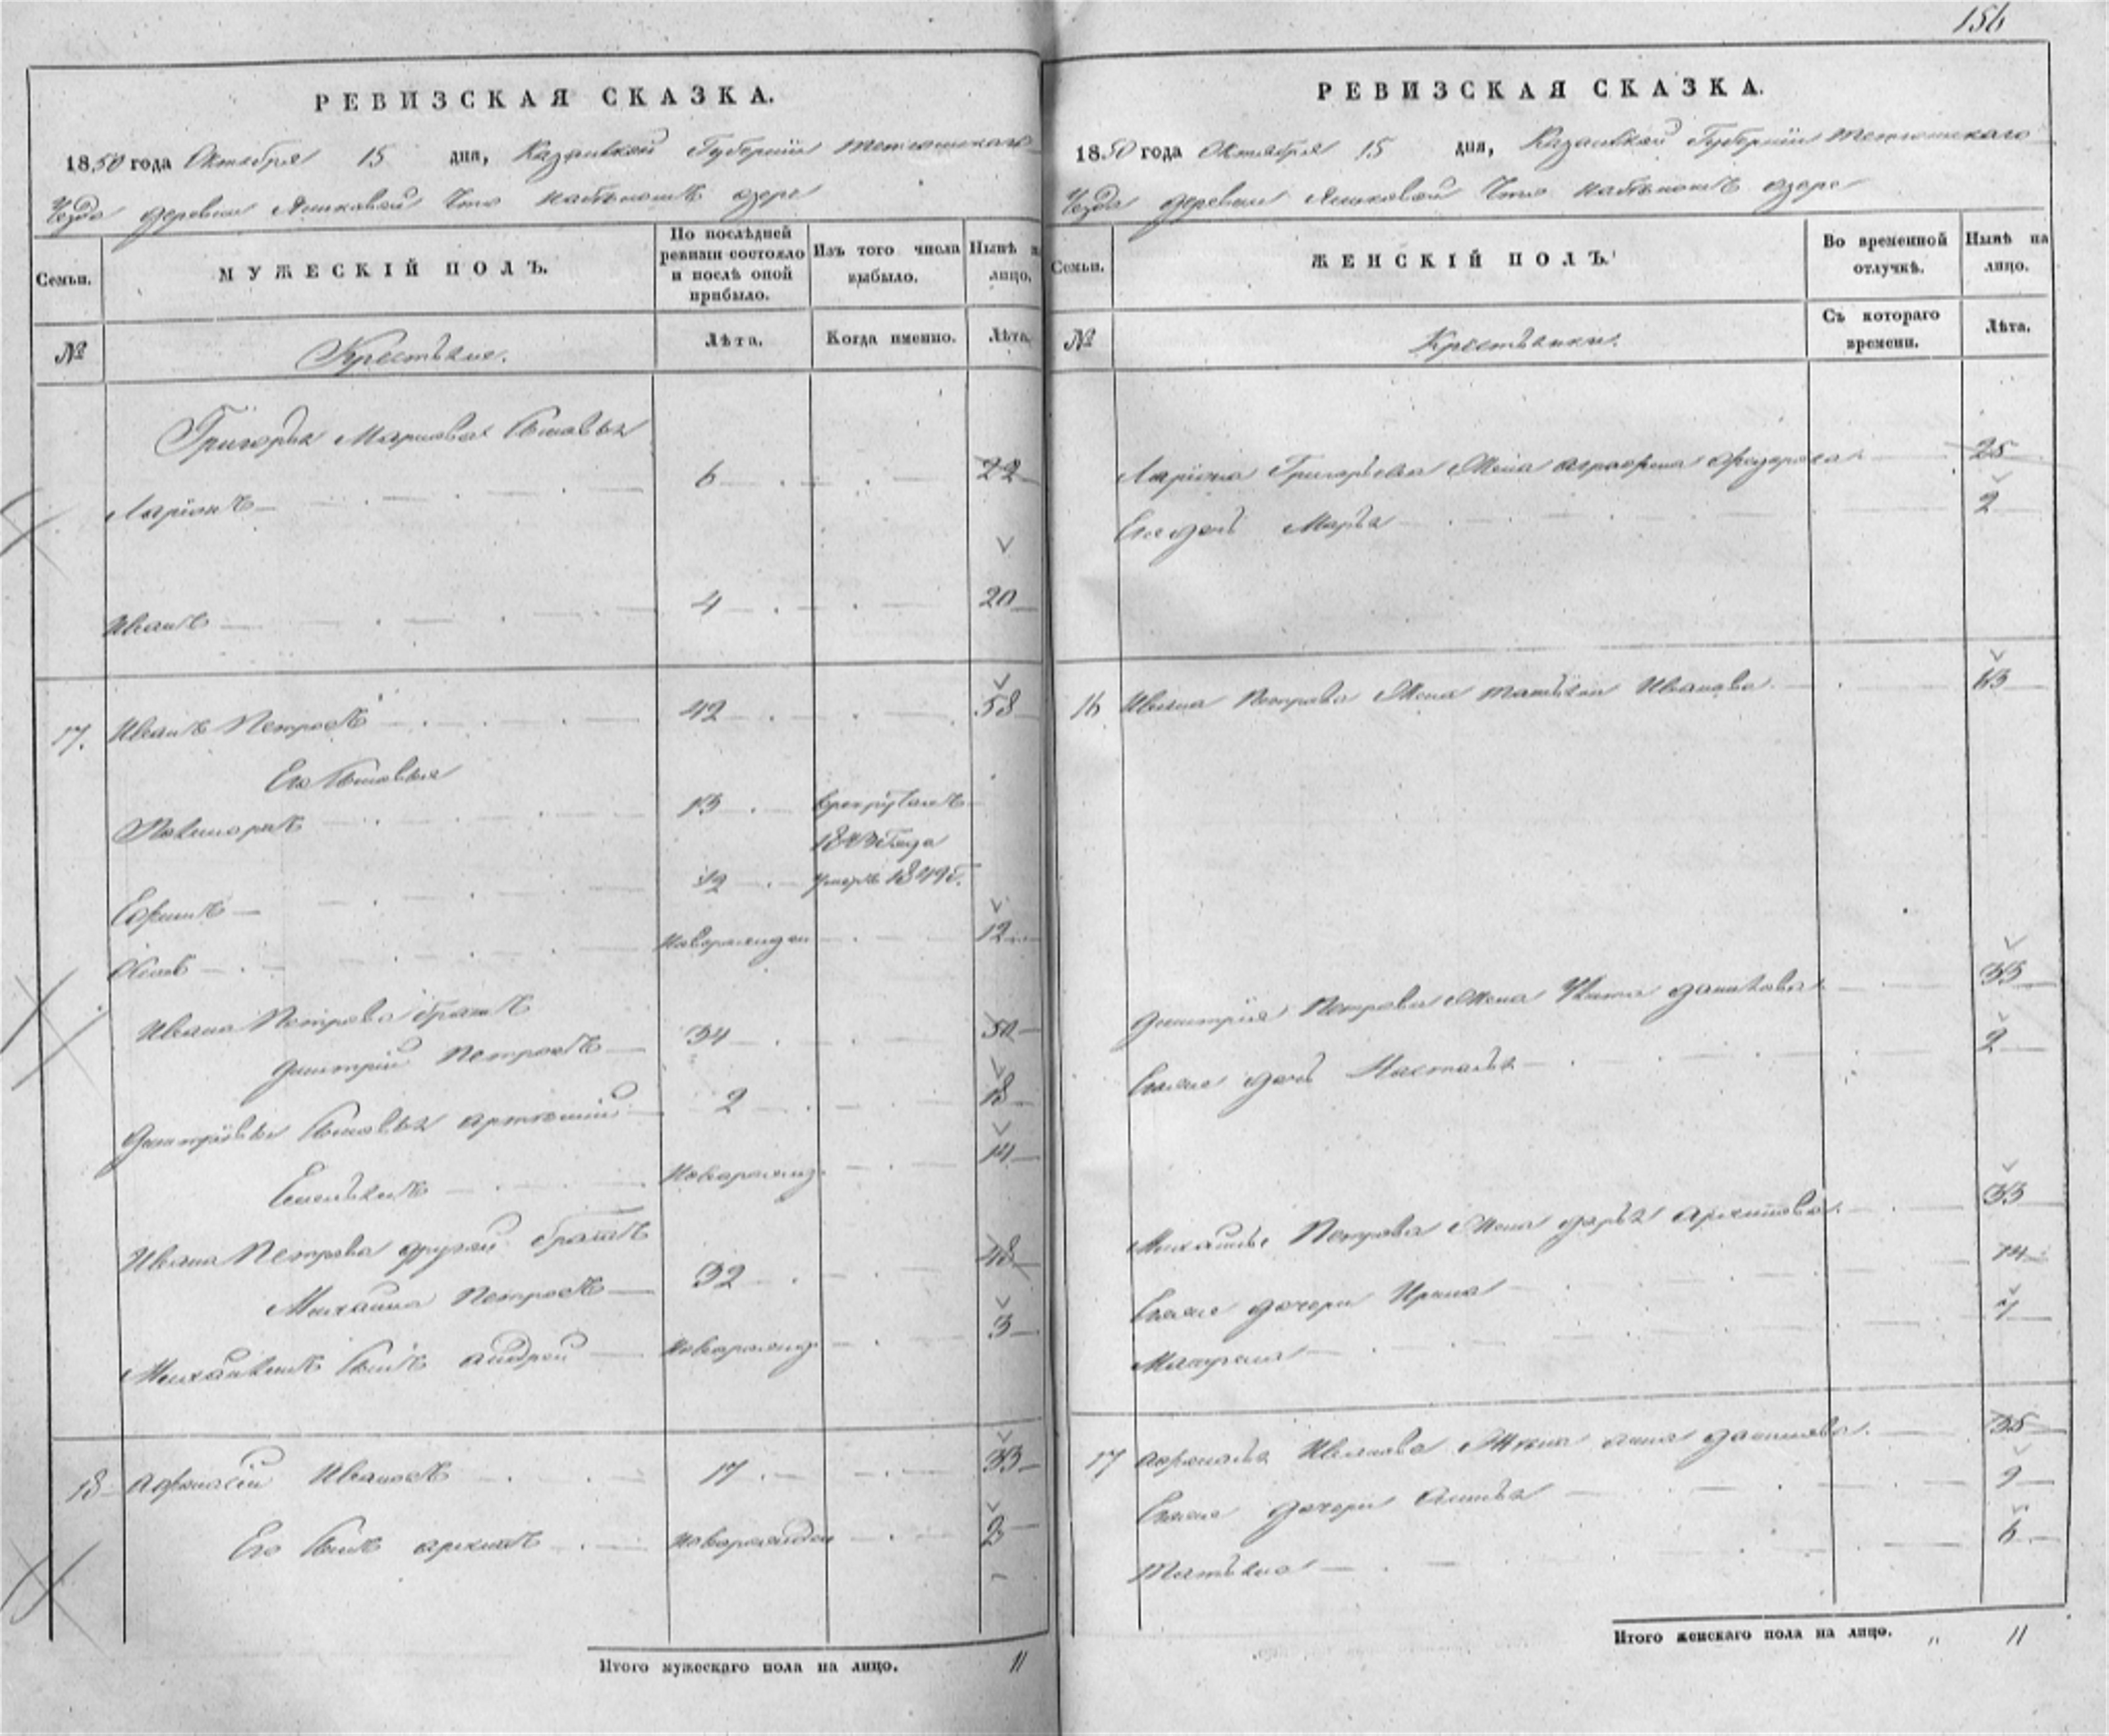 156
РЕВИЗСКАЯ СКАЗКА.
1850 года Октября 15 дня, Казанской Губернии Тетюшскаго
Уезда деревни Ямковой Что на
Семьи.
МУЖЕСКІЙ ПОЛЪ.
По послѣдней ревизіи состояло и послѣ оной прибыло.
Изъ того числа выбыло.
Нынѣ на лицо.
№
Крестьяне.
Лѣта.
Когда именно.
Лѣта.
Григорья Маркова сыновья
Ларіонъ 6 22
Иванъ 4 20
17. Иванъ Петровъ 42 58
Его сыновья
13 в рекруты
1843 Года
Ефимъ 12 умеръ 1849 г.
Осипъ новорожден 12
Ивана Петрова братъ
Дмитрій Петровъ 34 50
Дмитріевы сыновья Артемій 2 18
Емельянъ новорожд. 14
Ивана Петрова другой братъ
Михаила Петровъ 32 48
сынъ Андрей новорожд. 3
18 Афонасій Ивановъ 17 33
Его сынъ Архипъ новорожден 2
Итого мужескаго пола на лицо. 11
РЕВИЗСКАЯ СКАЗКА.
1850 года Октября 15 дня, Казанской Губерніи Тетюшскаго
Уезда деревни Ямковой Что на
Семьи.
ЖЕНСКІЙ ПОЛЪ.
Во временной отлучкѣ.
Нынѣ на лицо.
№
Крестьянки.
Съ котораго времени.
Лѣта.
Ларіона Григорьева Жена Аграфена Федорова 25
Ево дочь Марья 2
16 Ивана Петрова Жена Татьяна Иванова
Дмитрія Петрова Жена 35
дочь Настасья 2
Петрова Жена Дарья Архипова 33
дочери Ирина 14
Матрена
17 Афонасья Иванова Жена Анна 35
дочери 9
Татьяна 6
Итого женскаго пола на лицо. „ 11